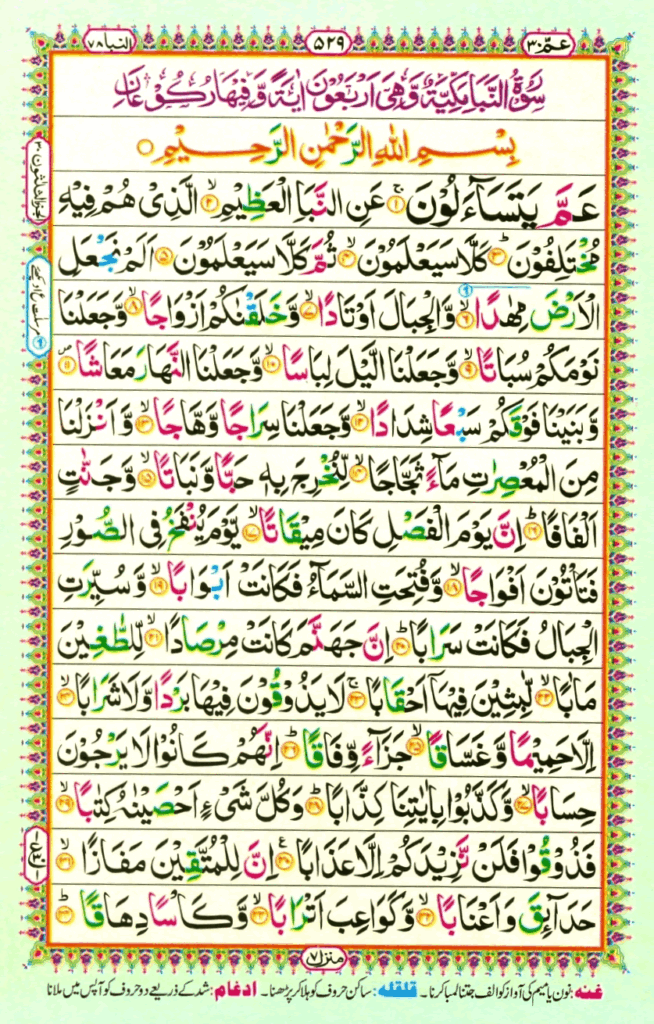 عَمَّ ٣٠
٥٢٩
النبا ٧٨
سُوْرَةُ النَّبَاِ مَكِّيَّةٌ وَّهِىَ اَرْبَعُوْنَ اٰيَةً وَّفِيْهَا رُكُوْعَانِ
بِسْمِ اللهِ الرَّحْمٰنِ الرَّحِيْمِ ○
عَمَّ يَتَسَآءَلُوْنَ ۚ‏﴿۱﴾ عَنِ النَّبَاِ الْعَظِيْمِ ۙ‏﴿۲﴾ الَّذِىْ هُمْ فِيْهِ
مُخْتَلِفُوْنَ ؕ‏﴿۳﴾ كَلَّا سَيَعْلَمُوْنَ ۙ‏﴿۴﴾ ثُمَّ كَلَّا سَيَعْلَمُوْنَ ‏﴿۵﴾ اَلَمْ نَجْعَلِ
الْاَرْضَ مِهٰدًا ۙ‏﴿۶﴾ وَّالْجِبَالَ اَوْتَادًا ۙ‏﴿۷﴾ وَّخَلَقْنٰكُمْ اَزْوَاجًا ۙ‏﴿۸﴾ وَّجَعَلْنَا
نَوْمَكُمْ سُبَاتًا ۙ‏﴿۹﴾ وَّجَعَلْنَا الَّيْلَ لِبَاسًا ۙ‏﴿۱۰﴾ وَّجَعَلْنَا النَّهَارَ مَعَاشًا ۪‏﴿۱۱﴾
وَّبَنَيْنَا فَوْقَكُمْ سَبْعًا شِدَادًا ۙ‏﴿۱۲﴾ وَّجَعَلْنَا سِرَاجًا وَّهَّاجًا ۙ‏﴿۱۳﴾ وَّاَنْزَلْنَا
مِنَ الْمُعْصِرٰتِ مَآءً ثَجَّاجًا ۙ‏﴿۱۴﴾ لِّنُخْرِجَ بِهٖ حَبًّا وَّنَبَاتًا ۙ‏﴿۱۵﴾ وَّجَنّٰتٍ
اَلْفَافًا ؕ‏﴿۱۶﴾ اِنَّ يَوْمَ الْفَصْلِ كَانَ مِيْقَاتًا ۙ‏﴿۱۷﴾ يَّوْمَ يُنْفَخُ فِى الصُّوْرِ
فَتَاْتُوْنَ اَفْوَاجًا ۙ‏﴿۱۸﴾ وَّفُتِحَتِ السَّمَآءُ فَكَانَتْ اَبْوَابًا ۙ‏﴿۱۹﴾ وَّسُيِّرَتِ
الْجِبَالُ فَكَانَتْ سَرَابًا ؕ‏﴿۲۰﴾ اِنَّ جَهَنَّمَ كَانَتْ مِرْصَادًا ۙ‏﴿۲۱﴾ لِّلطّٰغِيْنَ
مَاٰبًا ۙ‏﴿۲۲﴾ لّٰبِثِيْنَ فِيْهَاۤ اَحْقَابًا ۚ‏﴿۲۳﴾ لَا يَذُوْقُوْنَ فِيْهَا بَرْدًا وَّلَا شَرَابًا ۙ‏﴿۲۴﴾
اِلَّا حَمِيْمًا وَّغَسَّاقًا ۙ‏﴿۲۵﴾ جَزَآءً وِّفَاقًا ؕ‏﴿۲۶﴾ اِنَّهُمْ كَانُوْا لَا يَرْجُوْنَ
حِسَابًا ۙ‏﴿۲۷﴾ وَّكَذَّبُوْا بِاٰيٰتِنَا كِذَّابًا ؕ‏﴿۲۸﴾ وَكُلَّ شَىْءٍ اَحْصَيْنٰهُ كِتٰبًا ۙ‏﴿۲۹﴾
فَذُوْقُوْا فَلَنْ نَّزِيْدَكُمْ اِلَّا عَذَابًا ‏﴿۳۰﴾ اِنَّ لِلْمُتَّقِيْنَ مَفَازًا ۙ‏﴿۳۱﴾
حَدَآئِقَ وَاَعْنَابًا ۙ‏﴿۳۲﴾ وَّكَوَاعِبَ اَتْرَابًا ۙ‏﴿۳۳﴾ وَّكَاْسًا دِهَاقًا ؕ‏﴿۳۴﴾
منزل ٧
غنه: نون یا میم کی آواز کو الف جتنا لمبا کرنا۔ قلقله: ساکن حروف کو ہلا کر پڑھنا۔ ادغام: شد کے ذریعے دو حروف کو آپس میں ملانا